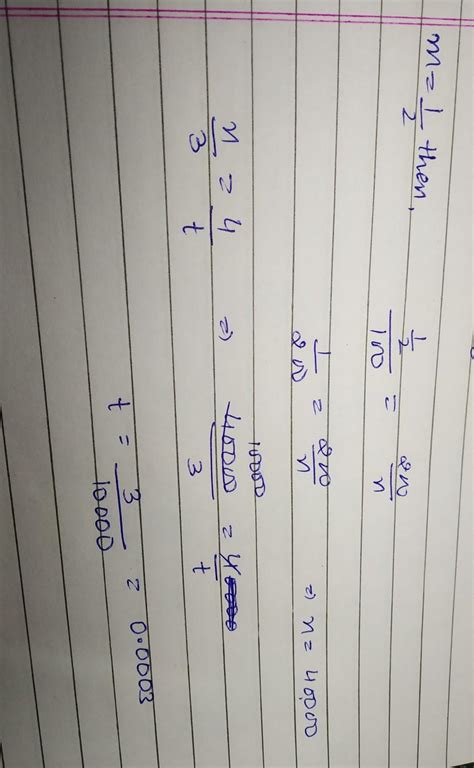 m = 1/2 then,
(1/2)/100 = 200/n
1/200 = 200/n ⇒ n = 40,000
n/3 = 4/t ⇒ 40000/3 = 4/t
10000
t = 3/10000 = 0.0003